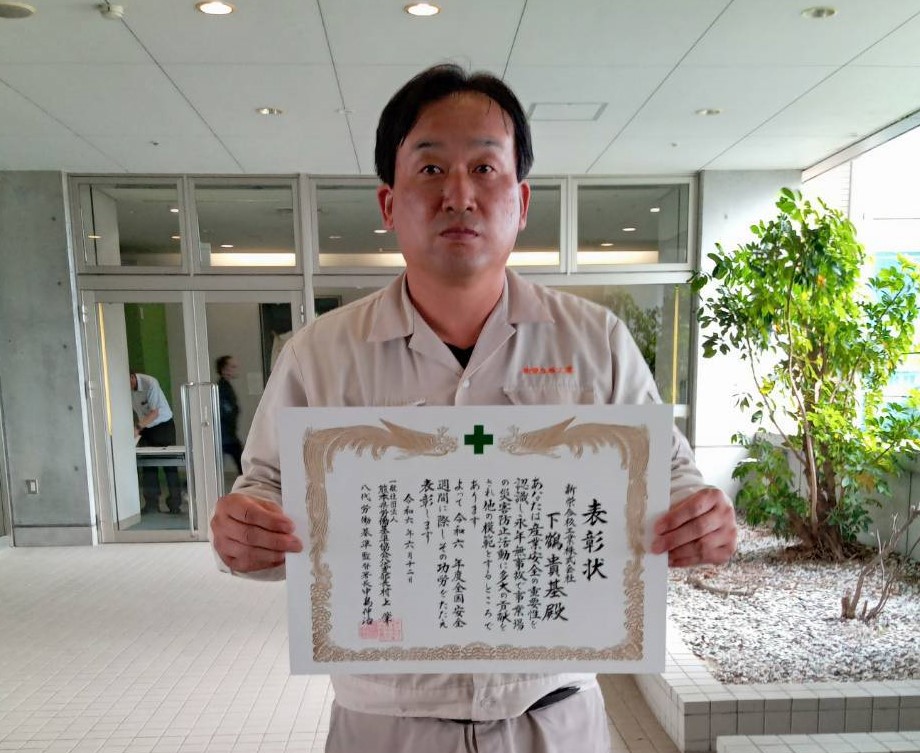 表彰状
新栄合板工業株式会社
下鶴貴基殿
あなたは産業安全の重要性を
認識し永年無事故で事業場
の災害防止活動に多大の貢献を
され他の模範とするところで
あります
よって令和六年度全国安全
週間に際しその功労をたたえ
表彰します
令和六年六月十二日
一般社団法人
熊本県労働基準協会八代支部長村上
八代労働基準監督署長中島伸治